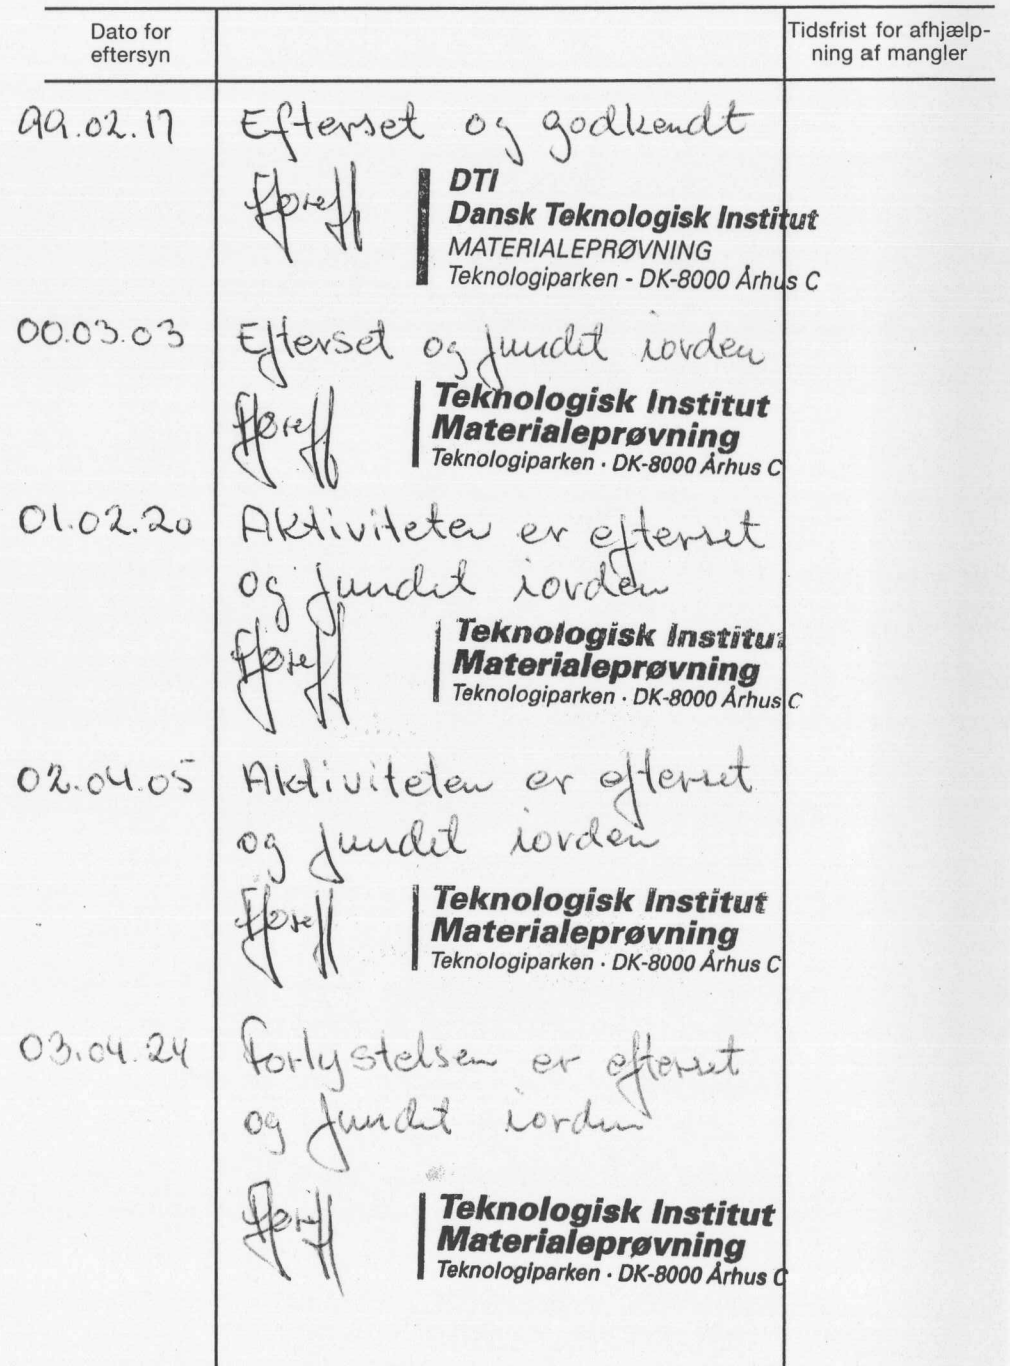 Dato for
eftersyn
Tidsfrist for afhjælp-
ning af mangler
99.02.17
Efterset og godkendt
DTI
Dansk Teknologisk Institut
MATERIALEPRØVNING
Teknologiparken - DK-8000 Århus C
00.03.03
Efterset og fundet iorden
Teknologisk Institut
Materialeprøvning
Teknologiparken · DK-8000 Århus C
01.02.20
Aktiviteten er efterset
og fundet iorden
Teknologisk Institut
Materialeprøvning
Teknologiparken · DK-8000 Århus C
02.04.05
Aktiviteten er efterset
og fundet iorden
Teknologisk Institut
Materialeprøvning
Teknologiparken · DK-8000 Århus C
03.04.24
Forlystelsen er efterset
og fundet iorden
Teknologisk Institut
Materialeprøvning
Teknologiparken · DK-8000 Århus C